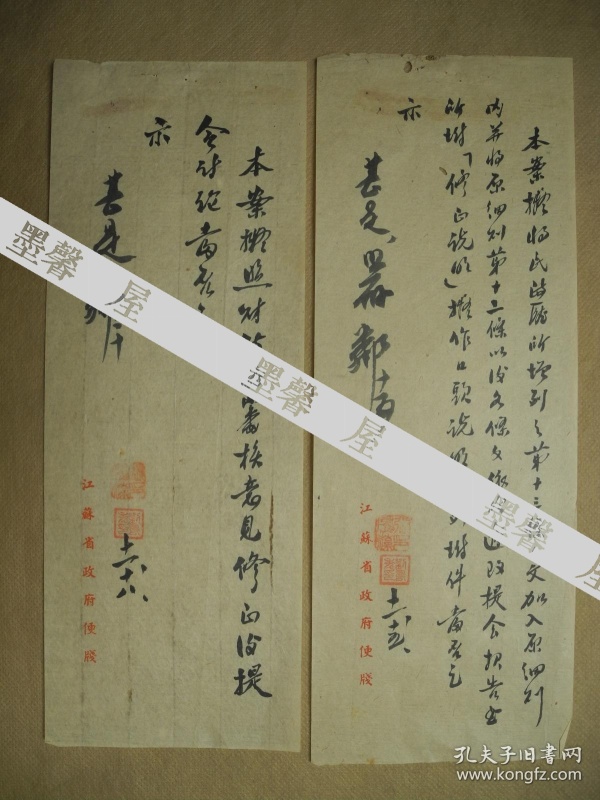 本案擬將民政廳所增列之第十三
文加入原細則
內并將原細則第十二條以後各條文
遞改提會報告書
所附「修正說明」擬作口頭說明
附件當否乞
示
甚是
鄰
江蘇省政府便牋
本案擬照財政
審核意見修正後提
會討論當否
示
甚是
江蘇省政府便牋
墨馨屋
墨馨屋
墨馨屋
墨馨屋
孔夫子旧书网
www.kongfz.com